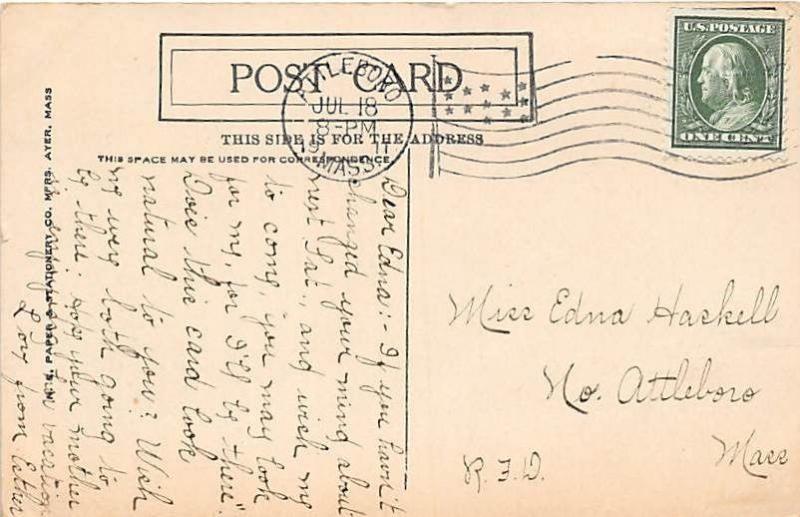 POST CARD
THIS SIDE IS FOR THE ADDRESS
THIS SPACE MAY BE USED FOR CORRESPONDENCE
U.S. POSTAGE
ONE CENT
ATTLEBORO
JUL 18
8-PM
MASS.
PAPER & STATIONERY CO. MFRS. AYER, MASS
Dear Edna:- If you havn't
changed your mind about
next Sat., and wish me
to come, "you may look
for me, for I'll be there".
Does this card look
natural to you? Wish
we were both going to
be there. Hope your mother
vacation
Love from Esther
Miss Edna Haskell
No. Attleboro
Mass
R.F.D.